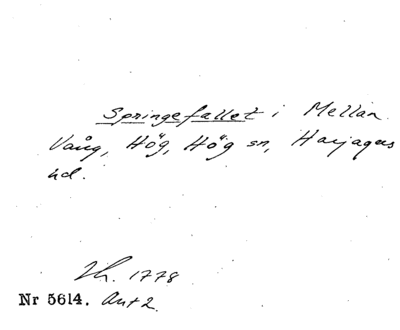 Springefallet i Mellan
Vång, Hög, Hög sn, Harjagers
hd.
1778
Nr 5614. Akt 2.